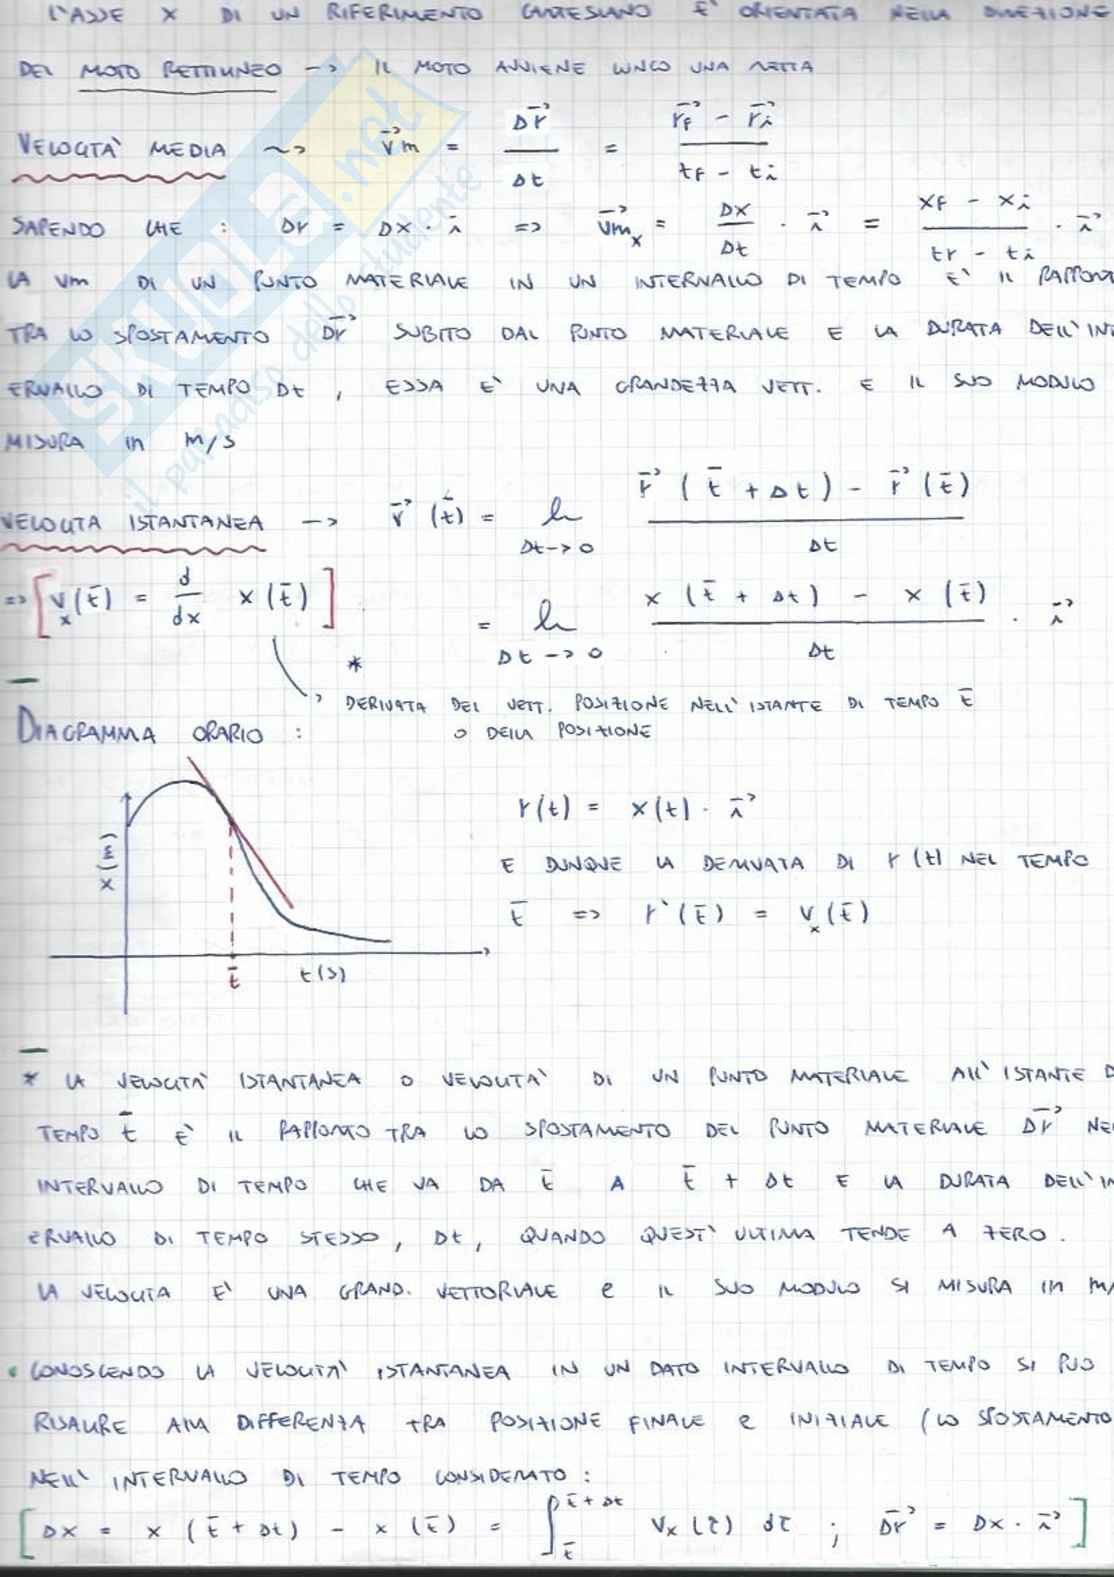 L'ASSE X DI UN RIFERIMENTO CARTESIANO E' ORIENTATA NELLA DIREZIONE
DEL MOTO RETTILINEO --> IL MOTO AVVIENE LUNGO UNA RETTA
VELOCITA' MEDIA ~> v⃗m = Δr⃗ / Δt = (r⃗f - r⃗i) / (tf - ti)
SAPENDO CHE : Δr = Δx · i⃗ => v⃗mx = Δx / Δt · i⃗ = (xf - xi) / (tf - ti) · i⃗
LA vm DI UN PUNTO MATERIALE IN UN INTERVALLO DI TEMPO E' IL RAPPORTO
TRA LO SPOSTAMENTO Δr⃗ SUBITO DAL PUNTO MATERIALE E LA DURATA DELL'INT
ERVALLO DI TEMPO Δt , ESSA E' UNA GRANDEZZA VETT. E IL SUO MODULO
MISURA in m/s
VELOCITA ISTANTANEA --> v⃗ (t̄) = lim Δt->0 (r⃗ (t̄ + Δt) - r⃗ (t̄)) / Δt
=> [ vx(t̄) = d/dx x(t̄) ] = lim Δt->0 (x (t̄ + Δt) - x (t̄)) / Δt · i⃗
* DERIVATA DEL VETT. POSIZIONE NELL'ISTANTE DI TEMPO t̄
O DELLA POSIZIONE
DIAGRAMMA ORARIO :
x(m)
t̄ t(s)
r(t) = x(t) · i⃗
E DUNQUE LA DERIVATA DI r(t) NEL TEMPO
t̄ => r'(t̄) = vx(t̄)
* LA VELOCITA' ISTANTANEA O VELOCITA' DI UN PUNTO MATERIALE ALL'ISTANTE D
TEMPO t̄ E' IL RAPPORTO TRA LO SPOSTAMENTO DEL PUNTO MATERIALE Δr⃗ NEL
INTERVALLO DI TEMPO CHE VA DA t̄ A t̄ + Δt E LA DURATA DELL'IN
ERVALLO DI TEMPO STESSO, Δt, QUANDO QUEST'ULTIMA TENDE A ZERO.
LA VELOCITA E' UNA GRAND. VETTORIALE e IL SUO MODULO SI MISURA in m/
• CONOSCENDO LA VELOCITA' ISTANTANEA IN UN DATO INTERVALLO DI TEMPO SI PUO
RISALIRE ALLA DIFFERENZA TRA POSIZIONE FINALE e INIZIALE (LO SPOSTAMENTO
NELL'INTERVALLO DI TEMPO CONSIDERATO :
[ Δx = x (t̄ + Δt) - x (t̄) = ∫ t̄ t̄+Δt vx (τ) dτ ; Δr⃗ = Δx · i⃗ ]
SKUOLA.net
il paradiso dello studente